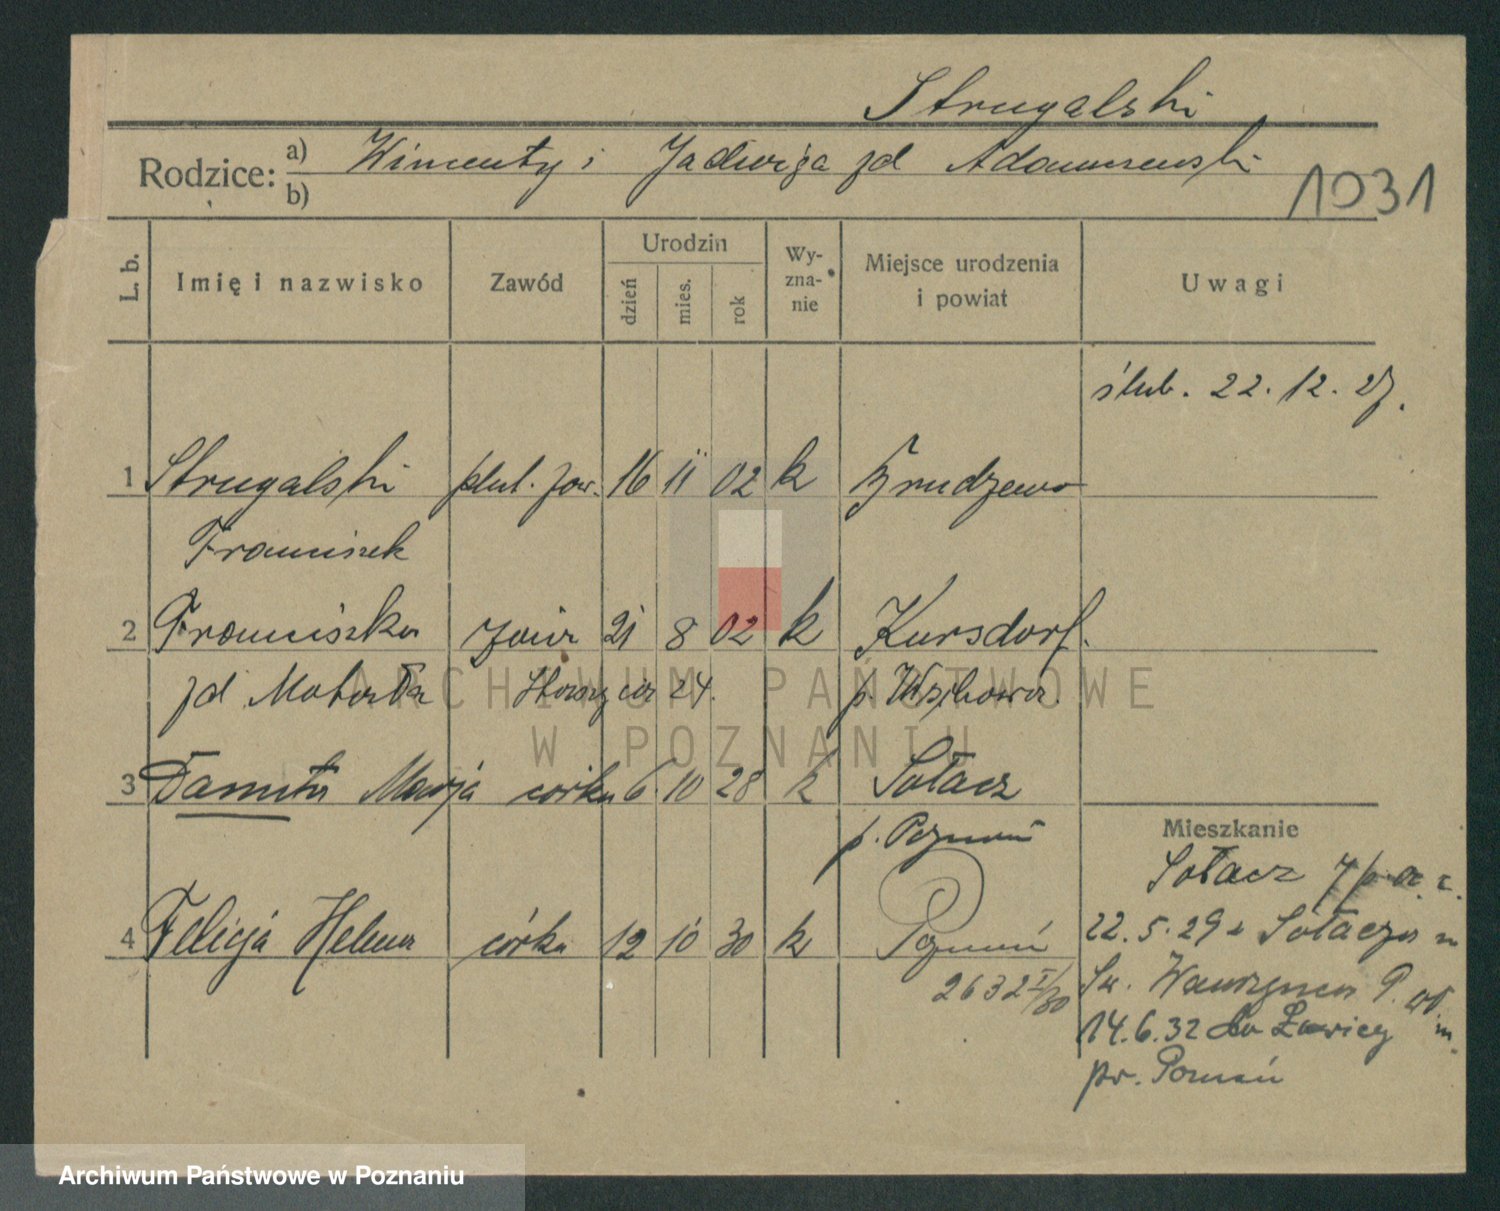 Strugalski
Rodzice: a) Wincenty i Jadwiga zd Adamczewski
b)
1031
L. b. Imię i nazwisko Zawód Urodzin dzień mies. rok Wy-zna-nie Miejsce urodzenia i powiat Uwagi
ślub. 22. 12. 27.
1 Strugalski plut. zaw. 16 11 02 k Brudzewo
Franciszek
2 Franciszka żona 21 8 02 k Kursdorf.
zd Matusta 24. p. Wschowa
3 Danuta Marja córka 6 10 28 k Sołacz
p. Poznań
Mieszkanie
Sołacz
4 Felicja Helena córka 12 10 30 k Poznań
2632 I/80
22.5.29 z Sołacza
Św. Wawrzyńca
14.6.32 do Ławicy
pw. Poznań
ARCHIWUM PAŃSTWOWE
W POZNANIU
Archiwum Państwowe w Poznaniu